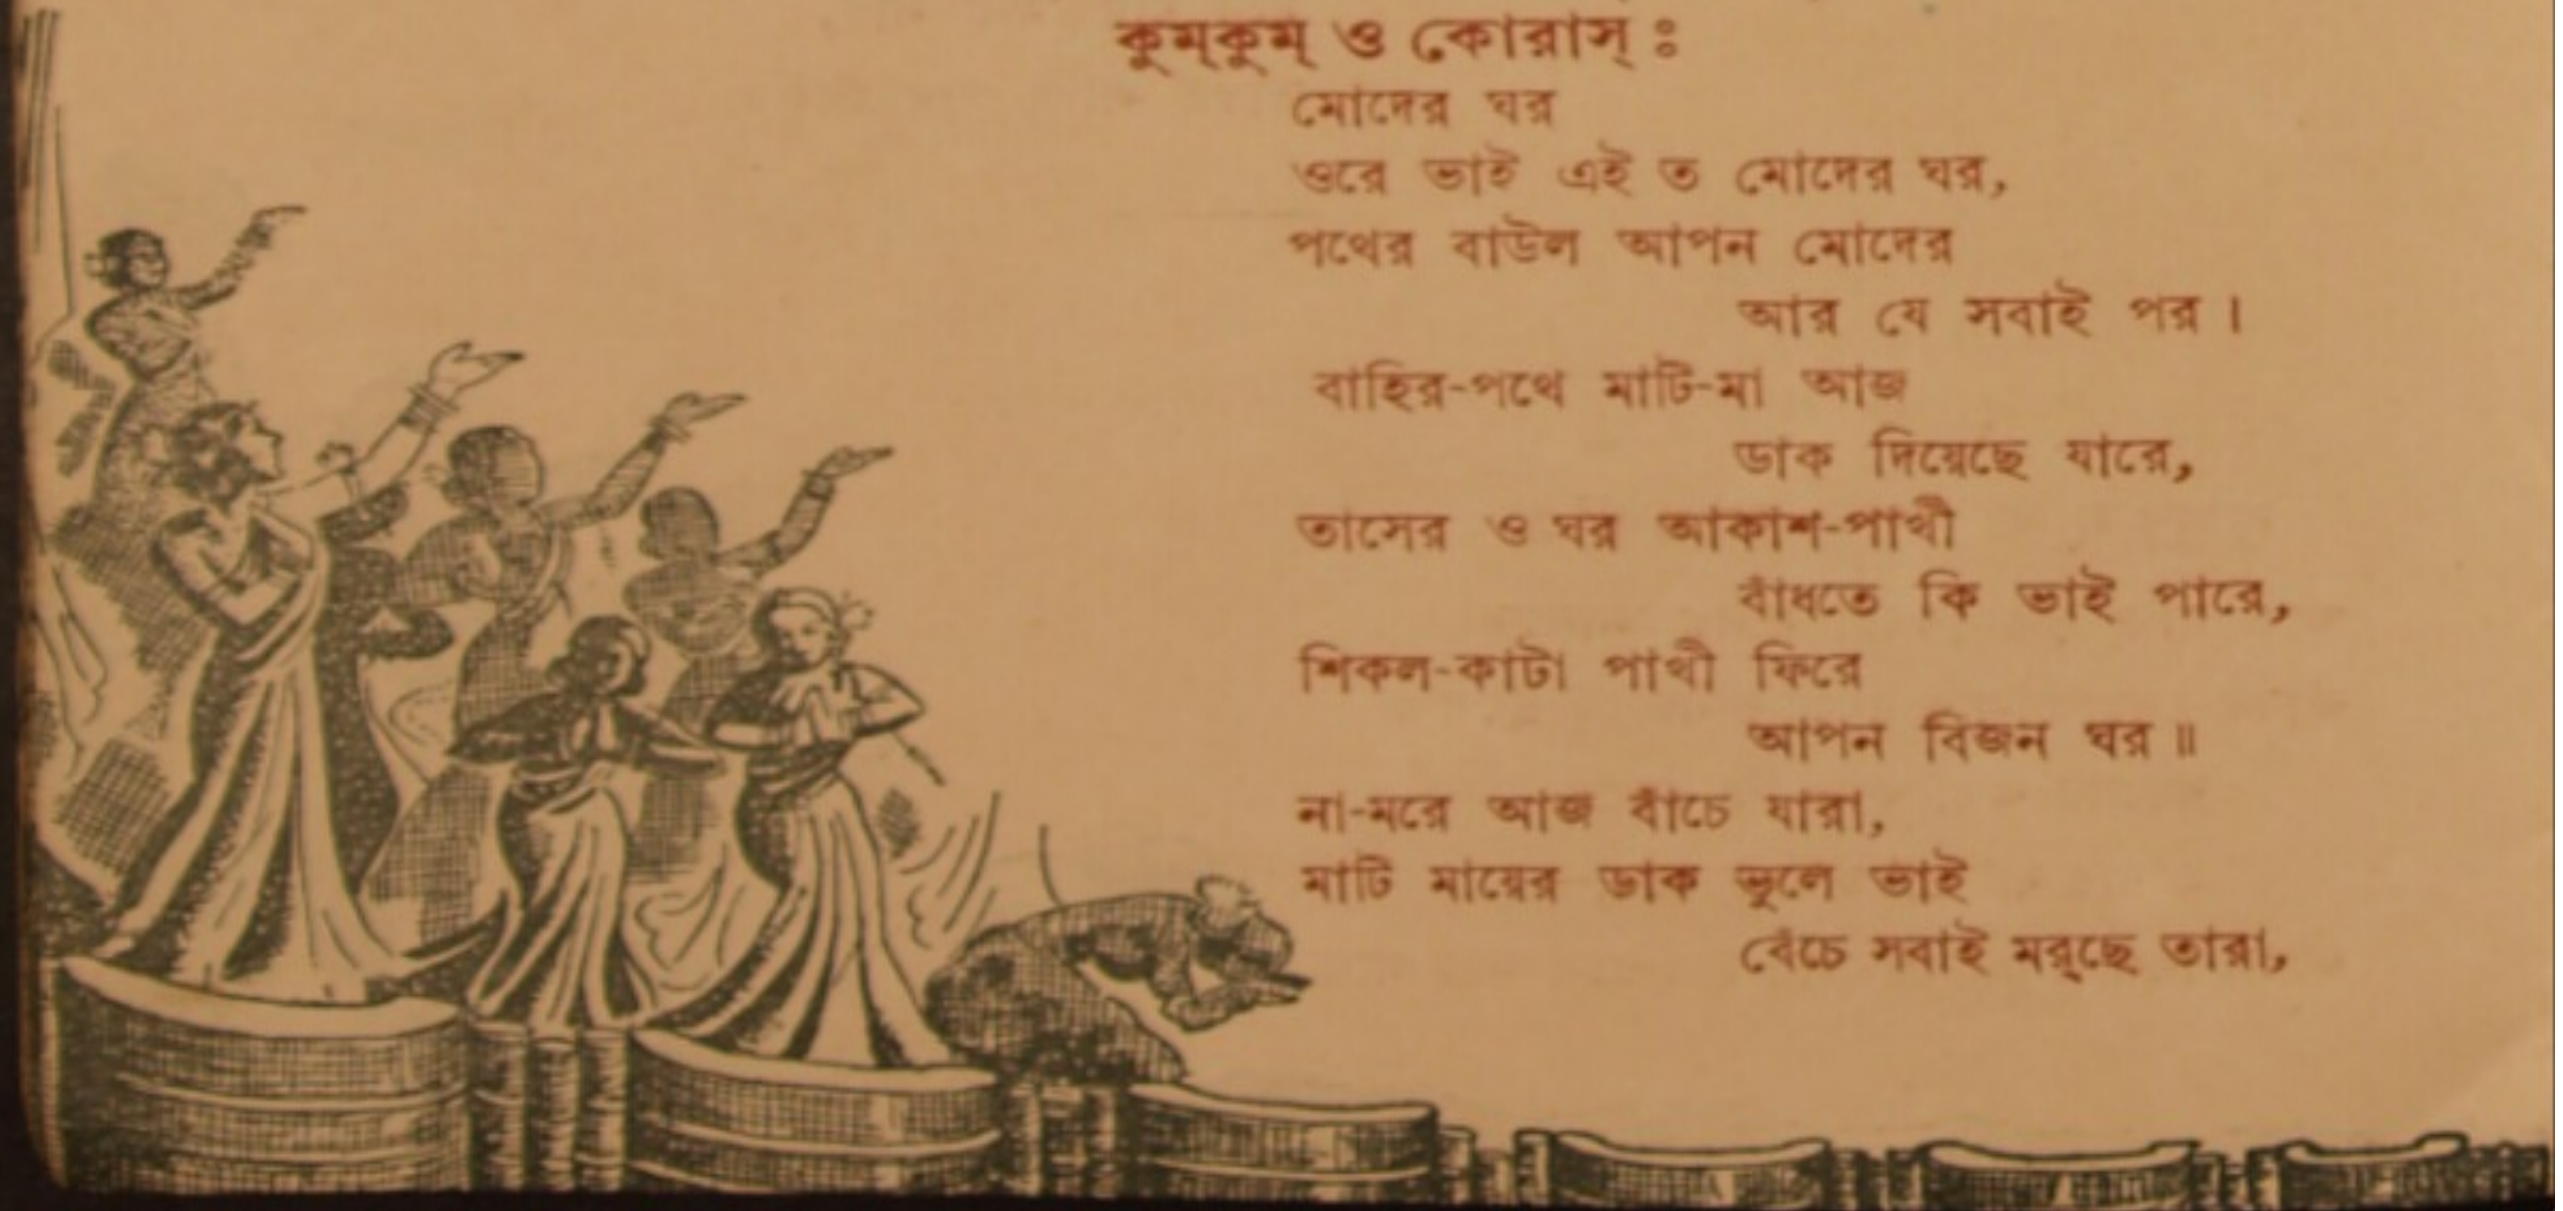 কুম্‌কুম্ ও কোরাস্ ঃ
মোদের ঘর
ওরে ভাই এই ত মোদের ঘর,
পথের বাউল আপন মোদের
আর যে সবাই পর ।
বাহির-পথে মাটি-মা আজ
ডাক দিয়েছে যারে,
তাসের ও ঘর আকাশ-পাখী
বাঁধতে কি ভাই পারে,
শিকল-কাটা পাখী ফিরে
আপন বিজন ঘর ॥
না-মরে আজ বাঁচে যারা,
মাটি মায়ের ডাক ভুলে ভাই
বেঁচে সবাই মর্‌ছে তারা,